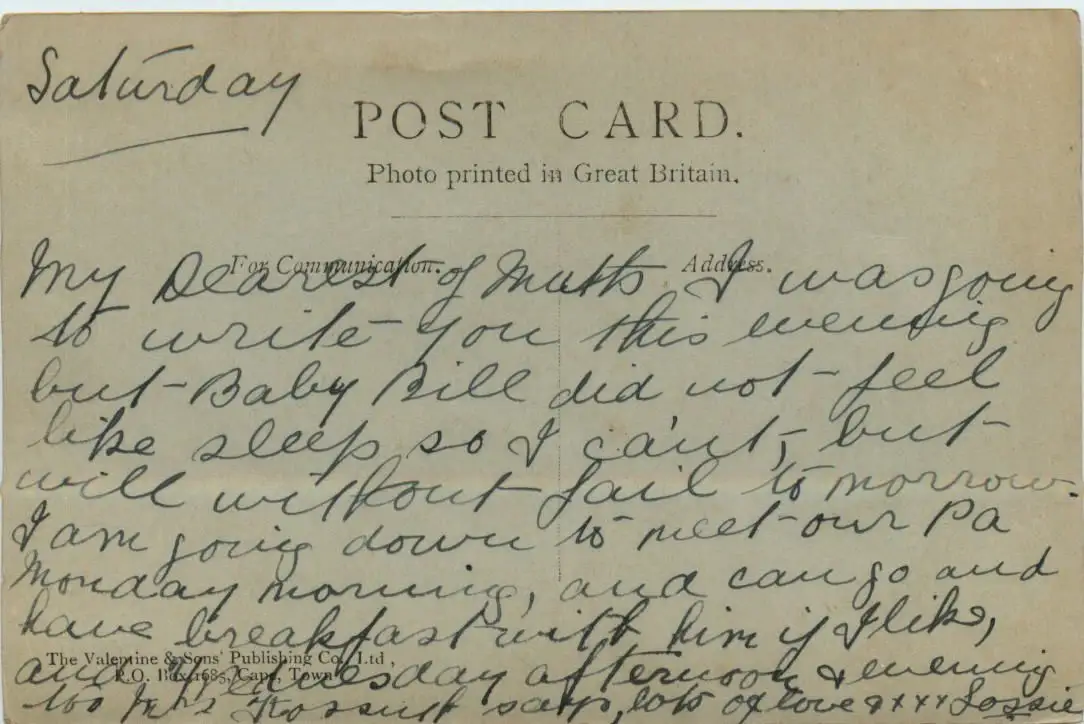 Saturday
POST CARD.
Photo printed in Great Britain.
For Communication.
Address.
My Dearest of Mutts I was going
to write you this evening
but Baby Bill did not feel
like sleep so I ca'nt, but
will without fail to morrow.
I am going down to meet our Pa
Monday morning, and can go and
have breakfast with him if I like,
The Valentine & Sons' Publishing Co., Ltd.,
P.O. Box 1685, Cape Town
and Wednesday afternoon & evening
too Mrs says, lots of love xxxx